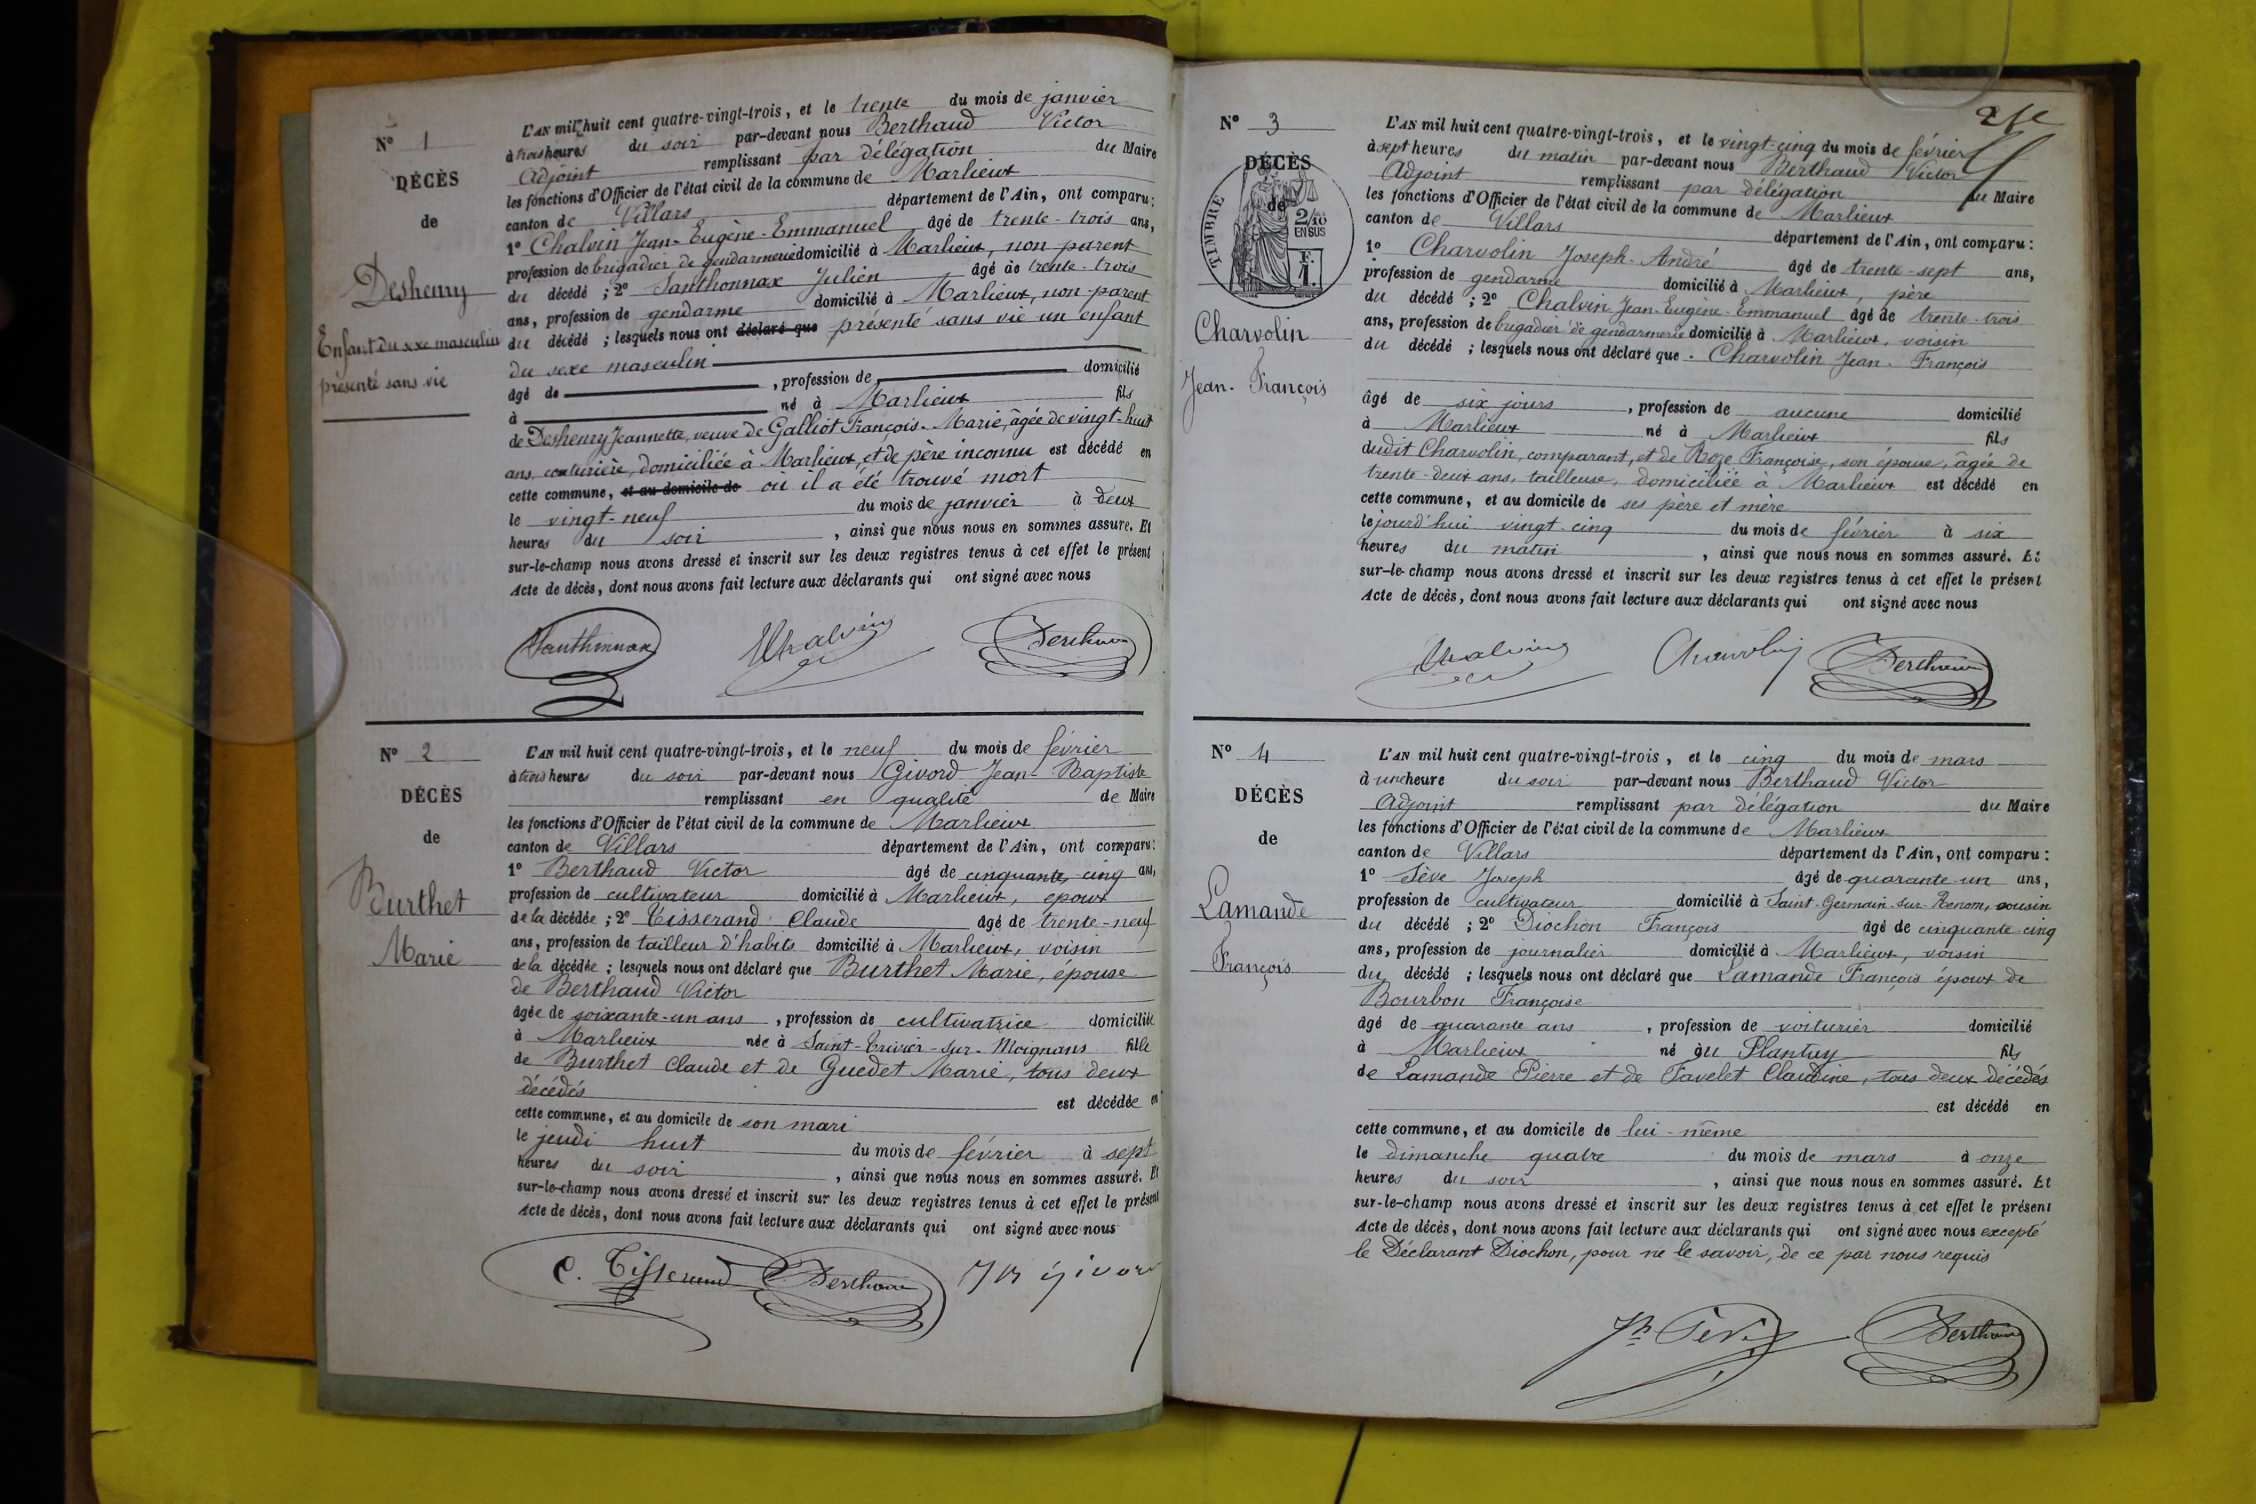 N° 1
DÉCÈS
de
Deshenry
Enfant du sexe masculin
présenté sans vie
L'AN mil huit cent quatre-vingt-trois, et le trente du mois de janvier
à trois heures du soir par-devant nous Berthaud Victor
Adjoint remplissant par délégation du Maire
les fonctions d'Officier de l'état civil de la commune de Marlieux
canton de Villars département de l'Ain, ont comparu:
1° Chalvin Jean-Eugène-Emmanuel âgé de trente-trois ans,
profession de brigadier de gendarmerie domicilié à Marlieux, non parent
du décédé; 2° Santhonnax Julien âgé de trente-trois
ans, profession de gendarme domicilié à Marlieux, non-parent
du décédé; lesquels nous ont déclaré que présenté sans vie un enfant
du sexe masculin
âgé de , profession de domicilié
à né à Marlieux fils
de Deshenry Jeannette, veuve de Galliot François-Marie, âgée de vingt-huit
ans, couturière, domiciliée à Marlieux, et de père inconnu est décédé en
cette commune, et au domicile de où il a été trouvé mort
le vingt-neuf du mois de janvier à deux
heures du soir, ainsi que nous nous en sommes assuré. Et
sur-le-champ nous avons dressé et inscrit sur les deux registres tenus à cet effet le présent
Acte de décès, dont nous avons fait lecture aux déclarants qui ont signé avec nous
Santhonnax Chalvin Berthaud
N° 2
DÉCÈS
de
Burthet
Marie
L'AN mil huit cent quatre-vingt-trois, et le neuf du mois de février
à trois heures du soir par-devant nous Givord Jean-Baptiste
remplissant en qualité de Maire
les fonctions d'Officier de l'état civil de la commune de Marlieux
canton de Villars département de l'Ain, ont comparu:
1° Berthaud Victor âgé de cinquante-cinq ans,
profession de cultivateur domicilié à Marlieux, époux
de la décédée; 2° Tisserand Claude âgé de trente-neuf
ans, profession de tailleur d'habits domicilié à Marlieux, voisin
de la décédée; lesquels nous ont déclaré que Burthet Marie, épouse
de Berthaud Victor
âgée de soixante-un ans, profession de cultivatrice domiciliée
à Marlieux née à Saint-Trivier-sur-Moignans fille
de Burthet Claude et de Guedet Marie, tous deux
décédés est décédée en
cette commune, et au domicile de son mari
le jeudi huit du mois de février à sept
heures du soir, ainsi que nous nous en sommes assuré. Et
sur-le-champ nous avons dressé et inscrit sur les deux registres tenus à cet effet le présent
Acte de décès, dont nous avons fait lecture aux déclarants qui ont signé avec nous
C. Tisserand Berthaud JB Givord
N° 3
DÉCÈS
de
TIMBRE
2/10
EN SUS
Charvolin
Jean-François
L'AN mil huit cent quatre-vingt-trois, et le vingt-cinq du mois de février
à sept heures du matin par-devant nous Berthaud Victor
Adjoint remplissant par délégation du Maire
les fonctions d'Officier de l'état civil de la commune de Marlieux
canton de Villars département de l'Ain, ont comparu:
1° Charvolin Joseph-André âgé de trente-sept ans,
profession de gendarme domicilié à Marlieux, père
du décédé; 2° Chalvin Jean-Eugène-Emmanuel âgé de trente-trois
ans, profession de brigadier de gendarmerie domicilié à Marlieux, voisin
du décédé; lesquels nous ont déclaré que Charvolin Jean-François
âgé de six jours, profession de aucune domicilié
à Marlieux né à Marlieux fils
dudit Charvolin, comparant, et de Roze Françoise, son épouse, âgée de
trente-deux ans, tailleuse, domiciliée à Marlieux est décédé en
cette commune, et au domicile de ses père et mère
le jourd'hui vingt cinq du mois de février à six
heures du matin, ainsi que nous nous en sommes assuré. Et
sur-le-champ nous avons dressé et inscrit sur les deux registres tenus à cet effet le présent
Acte de décès, dont nous avons fait lecture aux déclarants qui ont signé avec nous
Chalvin Charvolin Berthaud
N° 4
DÉCÈS
de
Lamande
François
L'AN mil huit cent quatre-vingt-trois, et le cinq du mois de mars
à une heure du soir par-devant nous Berthaud Victor
Adjoint remplissant par délégation du Maire
les fonctions d'Officier de l'état civil de la commune de Marlieux
canton de Villars département de l'Ain, ont comparu:
1° Sève Joseph âgé de quarante-un ans,
profession de cultivateur domicilié à Saint-Germain-sur-Renom, cousin
du décédé; 2° Diochon François âgé de cinquante cinq
ans, profession de journalier domicilié à Marlieux, voisin
du décédé; lesquels nous ont déclaré que Lamande François époux de
Bourbon Françoise
âgé de quarante ans, profession de voiturier domicilié
à Marlieux né au Plantay fils
de Lamande Pierre et de Favelet Claudine, tous deux décédés
est décédé en
cette commune, et au domicile de lui-même
le dimanche quatre du mois de mars à onze
heures du soir, ainsi que nous nous en sommes assuré. Et
sur-le-champ nous avons dressé et inscrit sur les deux registres tenus à cet effet le présent
Acte de décès, dont nous avons fait lecture aux déclarants qui ont signé avec nous excepté
le Déclarant Diochon, pour ne le savoir, de ce par nous requis
Jh Sève Berthaud